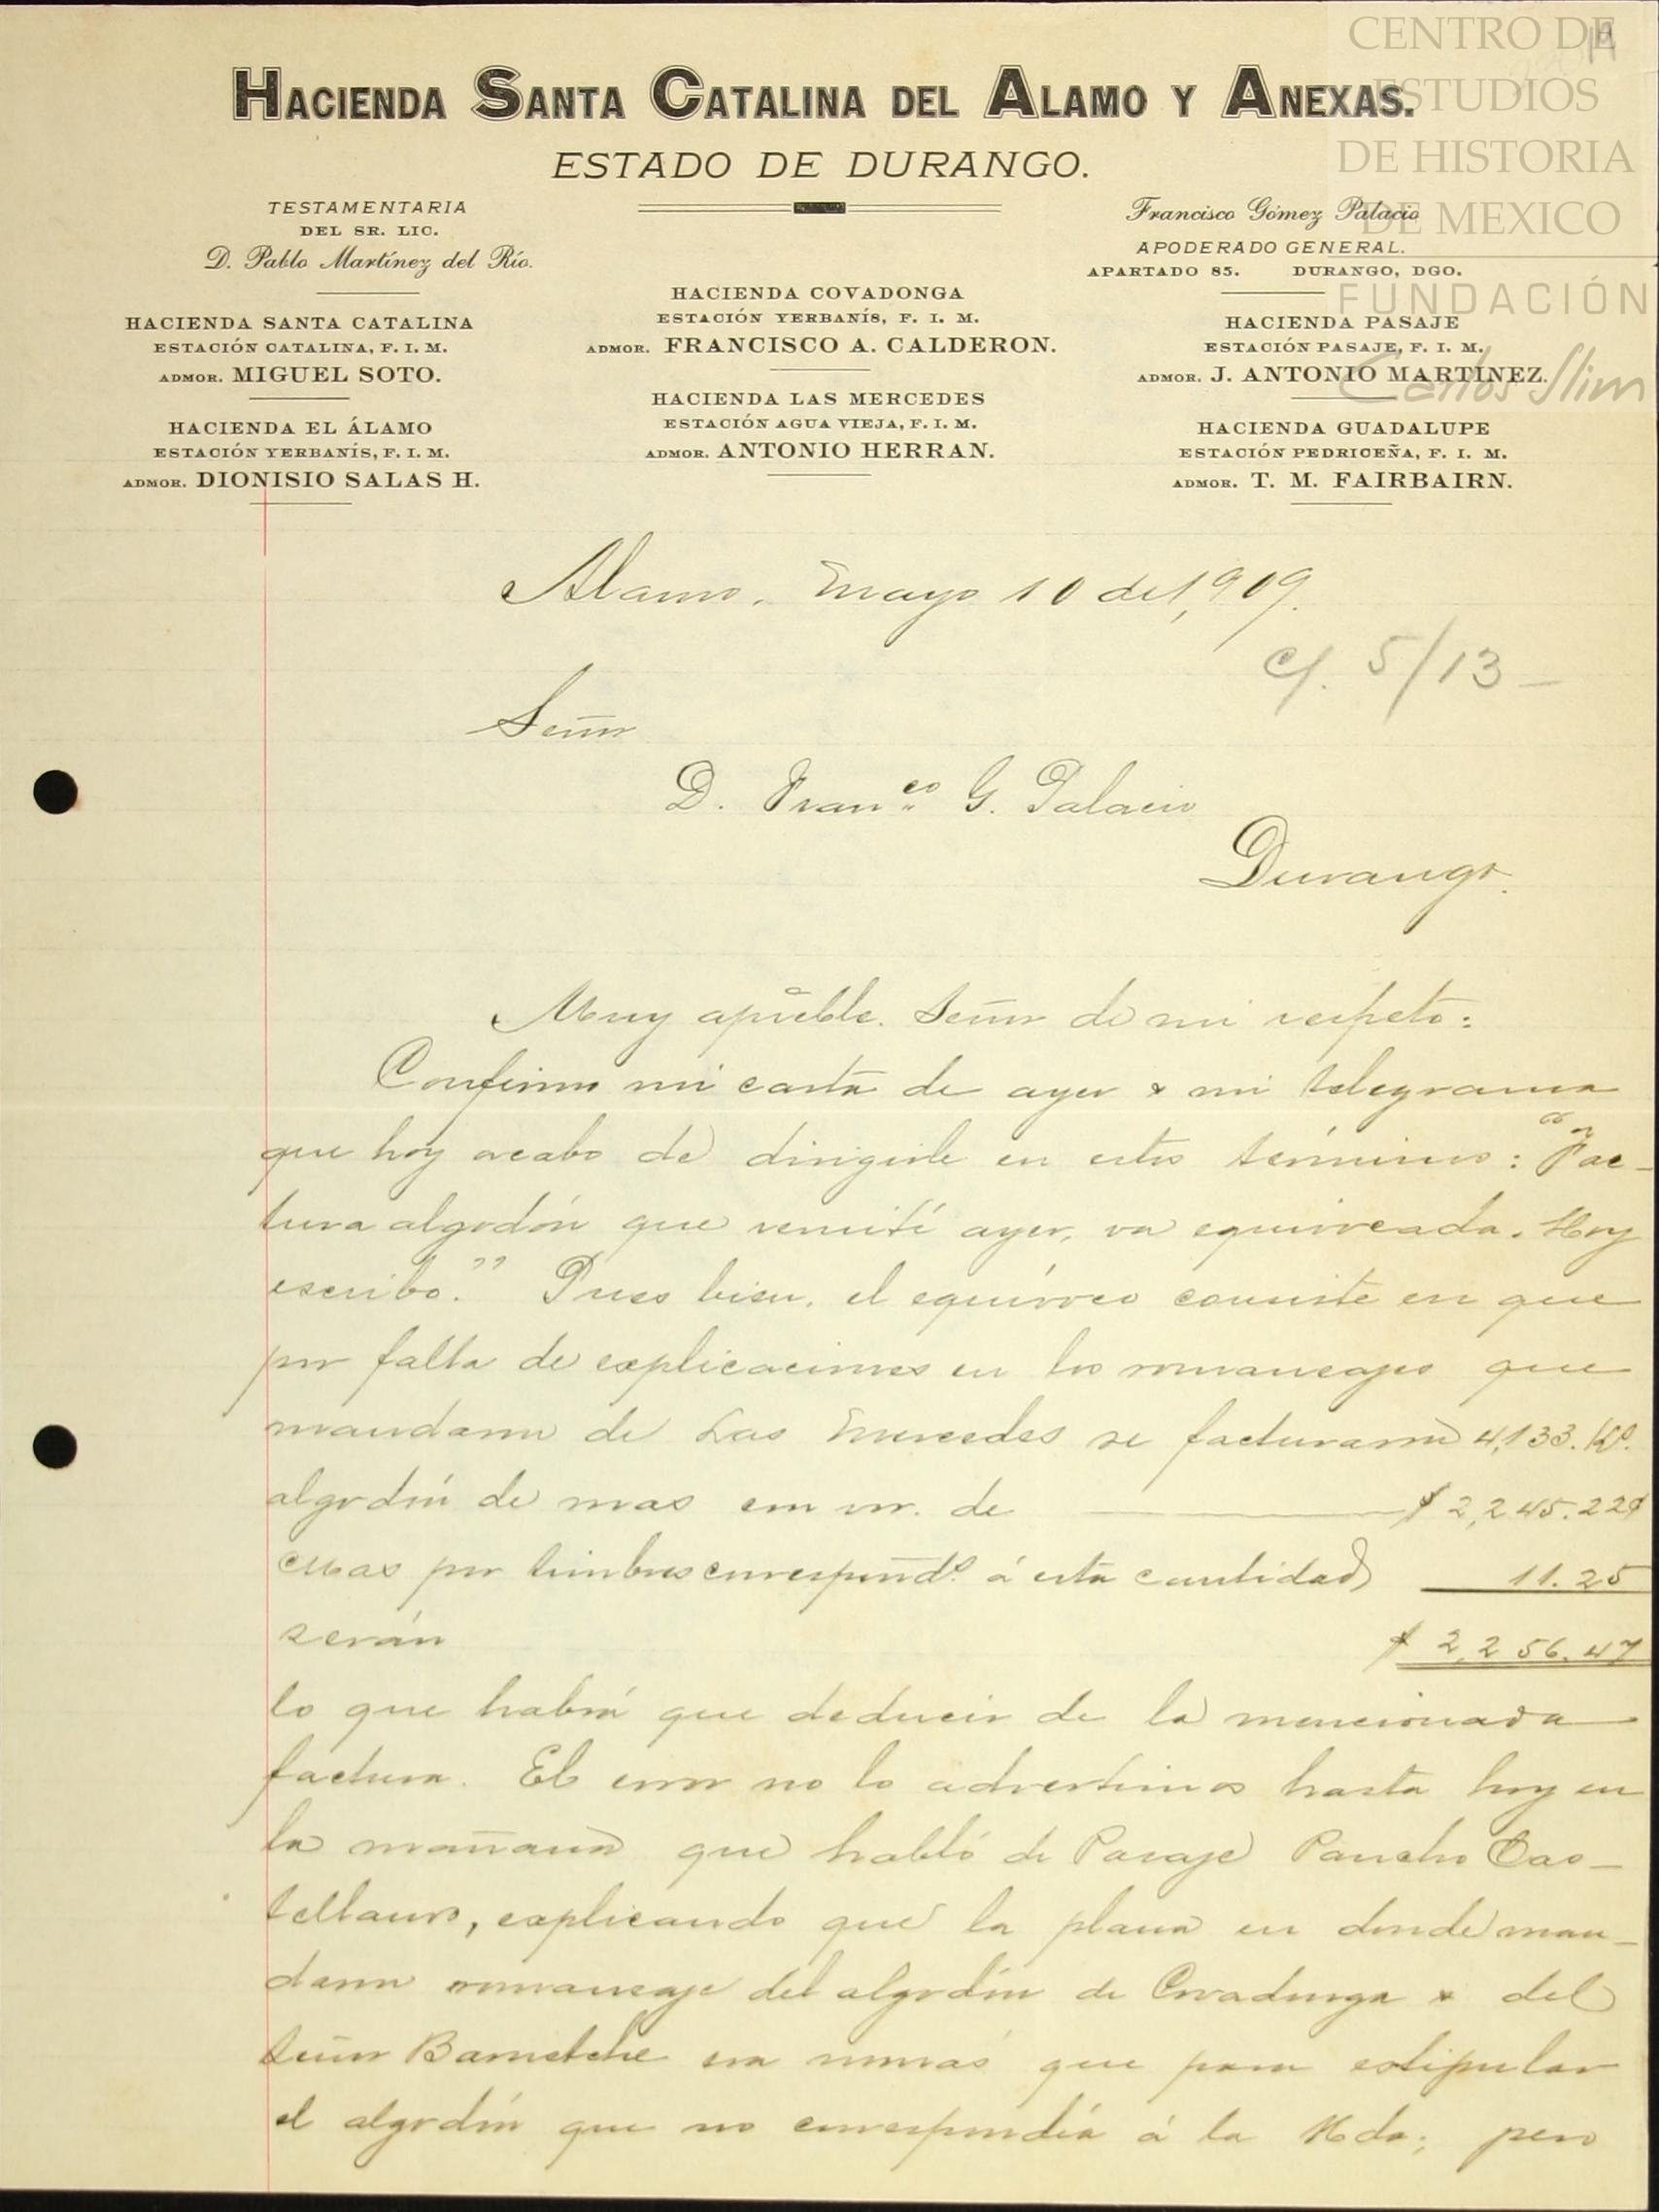 CENTRO DE
ESTUDIOS
DE HISTORIA
DE MEXICO
FUNDACIÓN
Carlos Slim
HACIENDA SANTA CATALINA DEL ALAMO Y ANEXAS.
ESTADO DE DURANGO.
TESTAMENTARIA
DEL SR. LIC.
D. Pablo Martínez del Río.
HACIENDA SANTA CATALINA
ESTACIÓN CATALINA, F. I. M.
ADMOR. MIGUEL SOTO.
HACIENDA EL ÁLAMO
ESTACIÓN YERBANÍS, F. I. M.
ADMOR. DIONISIO SALAS H.
HACIENDA COVADONGA
ESTACIÓN YERBANÍS, F. I. M.
ADMOR. FRANCISCO A. CALDERON.
HACIENDA LAS MERCEDES
ESTACIÓN AGUA VIEJA, F. I. M.
ADMOR. ANTONIO HERRAN.
Francisco Gómez Palacio
APODERADO GENERAL.
APARTADO 85. DURANGO, DGO.
HACIENDA PASAJE
ESTACIÓN PASAJE, F. I. M.
ADMOR. J. ANTONIO MARTÍNEZ.
HACIENDA GUADALUPE
ESTACIÓN PEDRICEÑA, F. I. M.
ADMOR. T. M. FAIRBAIRN.
Alamo, Mayo 10 de 1,909.
C/. 5/13 –
Señor
D. Fran.co G. Palacio
Durango.
Muy apreble. Señor de mi respeto:
Confirmo mi carta de ayer & mi telegrama
que hoy acabo de dirigirle en estos términos: "Fac-
tura algodón que remití ayer, va equivocada. Hoy
escribo." Pues bien, el equívoco consiste en que
por falta de explicaciones en los romaneajes que
mandaron de Las Mercedes se facturaron 4,133. Ko.
algodón de mas con vr. de $ 2,245.22¢
Mas por timbres correspondo. á esta cantidad 11.25
serán $ 2,256.47
lo que habrá que deducir de la mencionada
factura. El error no lo advertimos hasta hoy en
la mañana que habló de Pasaje Pancho Cas-
tellanos, explicando que la plana en donde man-
daron romaneaje del algodón de Covadonga & del
Señor Barnetche era nomás que para estipular
el algodón que no correspondía á la Hda; pero